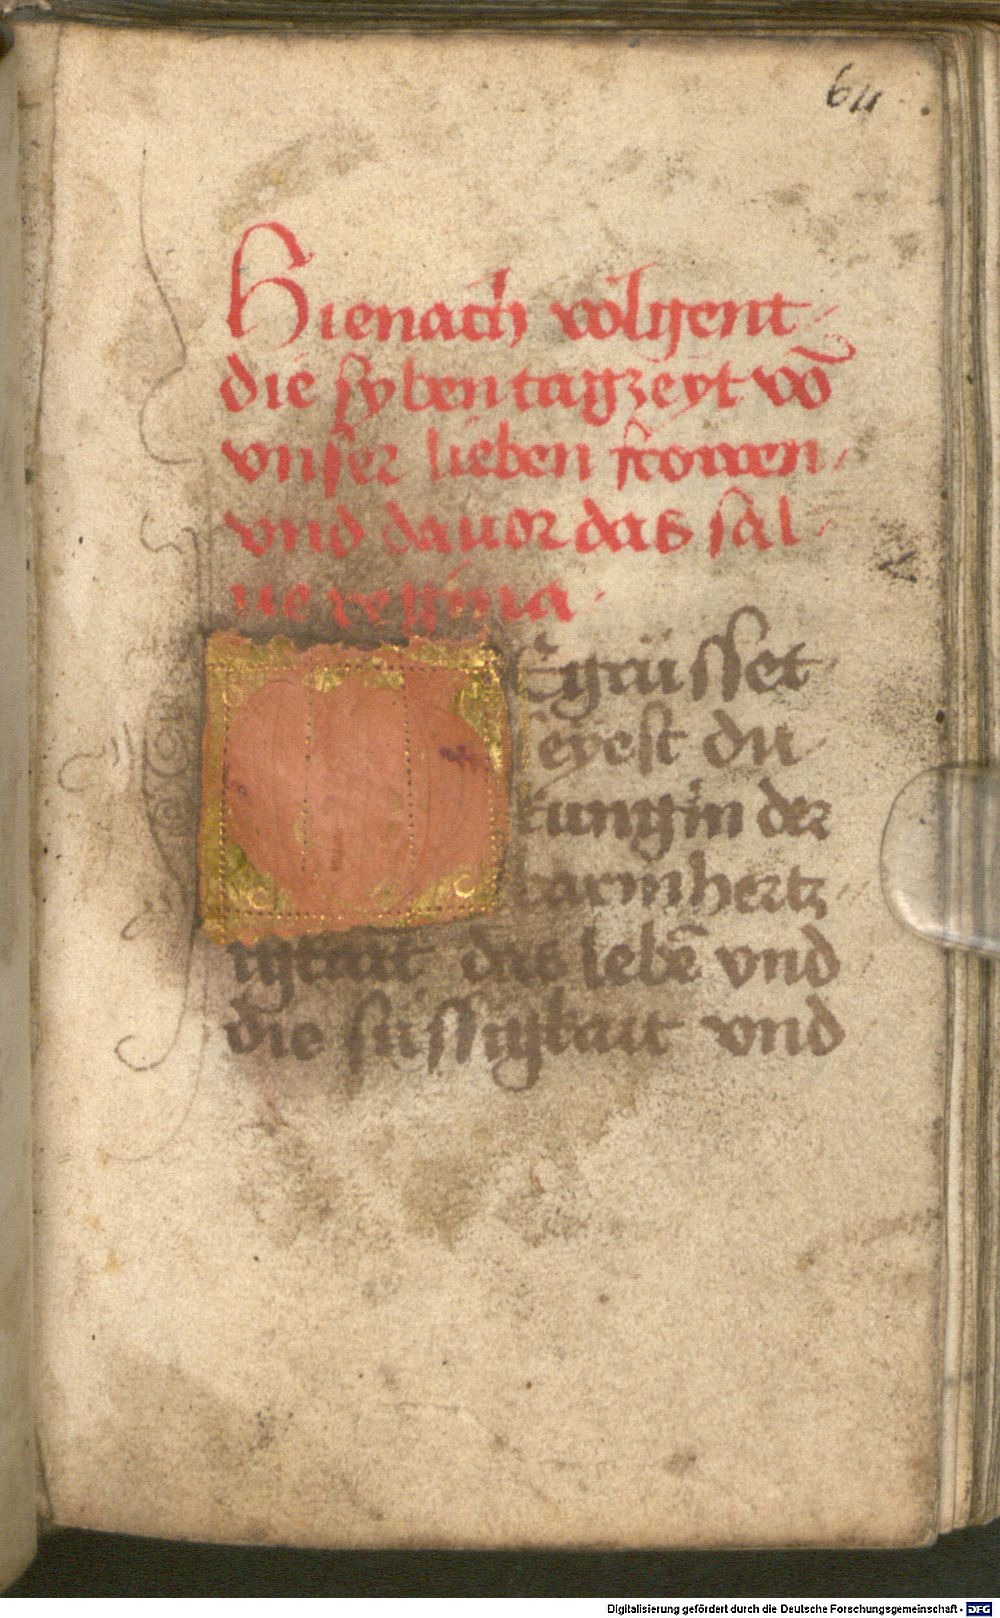 64
Hienach volgent
die syben tagzeyt vō
vnser lieben frowen
vnd dauor das sal
ue regina
Egrüsset
seyest du
kungin der
barmhertz
igkait das lebē vnd
die süssigkait vnd
Digitalisierung gefördert durch die Deutsche Forschungsgemeinschaft - DFG